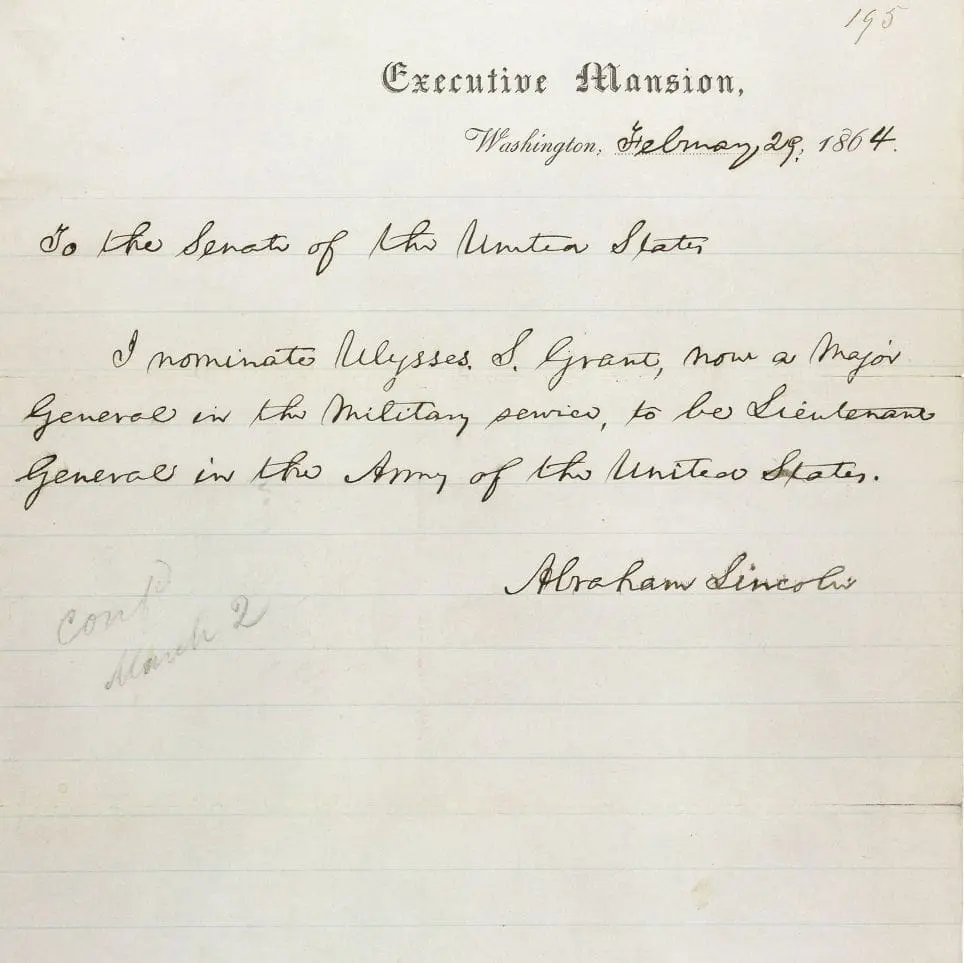 195
Executive Mansion,
Washington, February 29, 1864.
To the Senate of the United States
I nominate Ulysses. S. Grant, now a Major
General in the Military service, to be Lieutenant
General in the Army of the United States.
Abraham Lincoln
Conf^d
March 2